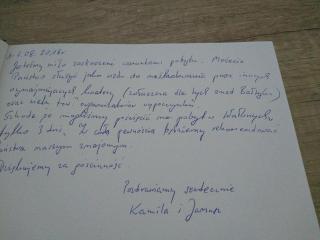 .08.2018r
Jesteśmy mile zaskoczeni warunkami pobytu. Możecie
Państwo służyć jako wzór do naśladowania przez innych
wynajmujących kwatery (zwłaszcza dla tych znad Bałtyku)
oraz wielu organizatorów wypoczynku.
Szkoda, że mogliśmy pobyt w
tylko 3 dni. Z całą pewnością będziemy rekomendować
Państwa naszym znajomym.
Dziękujemy za gościnność
Pozdrawiamy serdecznie
Kamila i Janusz